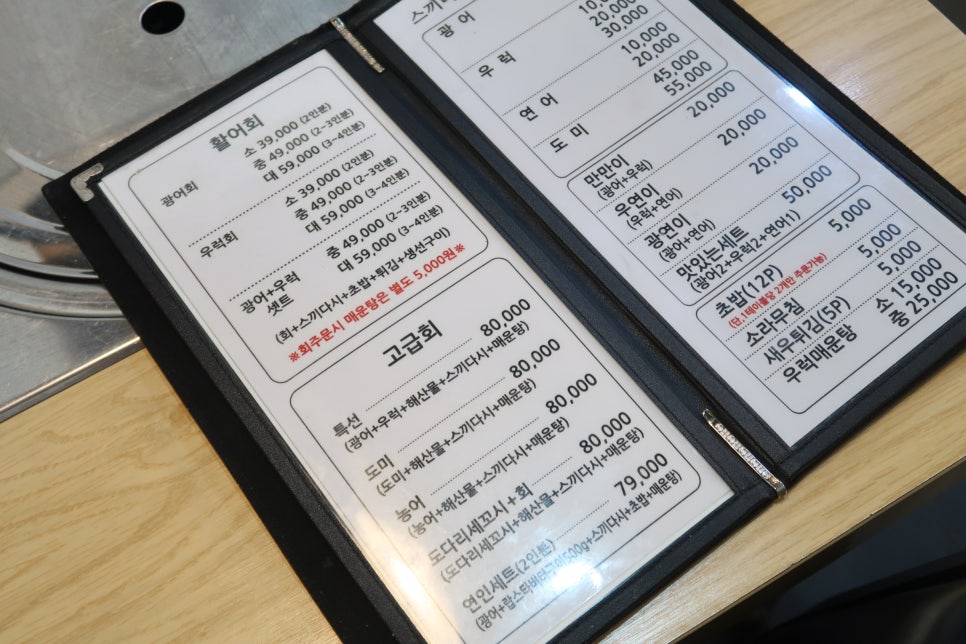 활어회
소 39,000 (2인분)
중 49,000 (2~3인분)
광어회
대 59,000 (3~4인분)
소 39,000 (2인분)
중 49,000 (2~3인분)
우럭회
대 59,000 (3~4인분)
중 49,000 (2~3인분)
광어+우럭
셋트
대 59,000 (3~4인분)
(회+스끼다시+초밥+튀김+생선구이)
※회주문시 매운탕은 별도 5,000원※
고급회
특선 80,000
(광어+우럭+해산물+스끼다시+매운탕)
도미 80,000
(도미+해산물+스끼다시+매운탕)
농어 80,000
(농어+해산물+스끼다시+매운탕)
도다리세꼬시+회 80,000
(도다리세꼬시+해산물+스끼다시+매운탕)
연인세트(2인분) 79,000
(광어+랍스타버터구이500g+스끼다시+초밥+매운탕)
광어
20,000
30,000
우럭
10,000
20,000
연어
45,000
55,000
도미
20,000
만만이
(광어+우럭)
20,000
우연이
(우럭+연어)
20,000
광연이
(광어+연어)
50,000
맛있는세트
(광어2+우럭2+연어1)
초밥(12P) 5,000
(단,1테이블당 2개만 주문가능)
소라무침 5,000
새우튀김(5P) 5,000
우럭매운탕 소 15,000
중 25,000